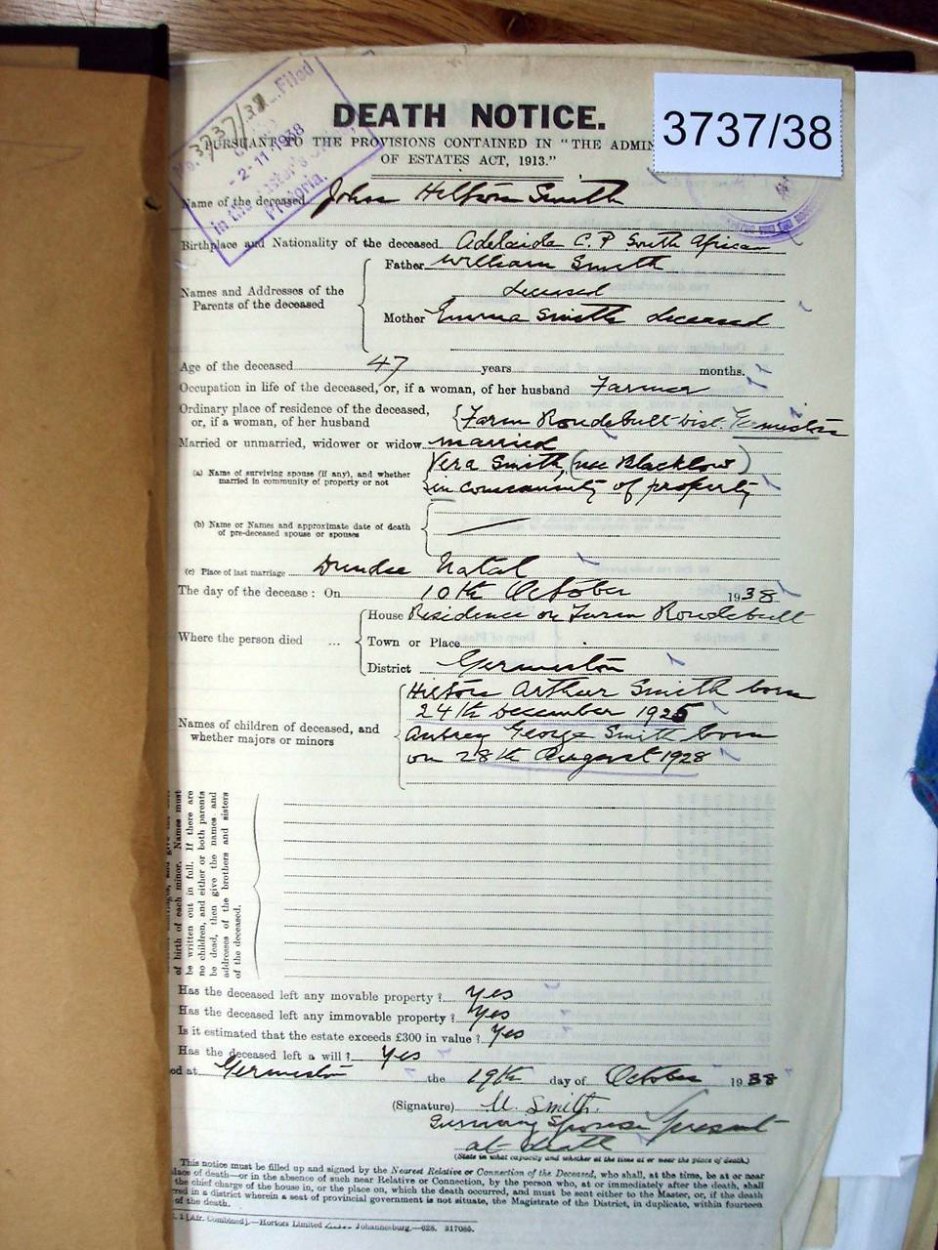 No. 3737/38 Filed
-2-11-1938
in the Master's
Pretoria.
3737/38
DEATH NOTICE.
PURSUANT TO THE PROVISIONS CONTAINED IN "THE ADMIN
OF ESTATES ACT, 1913."
Name of the deceased John Smith
Birthplace and Nationality of the deceased Adelaide C. P South African
Names and Addresses of the Parents of the deceased
Father William Smith
deceased
Mother Emma Smith deceased
Age of the deceased 47 years months.
Occupation in life of the deceased, or, if a woman, of her husband Farmer
Ordinary place of residence of the deceased, or, if a woman, of her husband Farm Rondebult Dist. Germiston
Married or unmarried, widower or widow married
(a) Name of surviving spouse (if any), and whether married in community of property or not
Vera Smith, (nee Blacklow)
in community of property
(b) Name or Names and approximate date of death of pre-deceased spouse or spouses
(c) Place of last marriage Dundee Natal
The day of the decease : On 10th October 1938
Where the person died ...
House Residence on Farm Rondebult
Town or Place
District Germiston
Names of children of deceased, and whether majors or minors
Hilton Arthur Smith born
24th December 1925
Aubrey George Smith born
on 28th August 1928
of birth of each minor. Names must
be written out in full. If there are
no children, and either or both parents
be dead, then give the names and
addresses of the brothers and sisters
of the deceased.
Has the deceased left any movable property ? Yes
Has the deceased left any immovable property ? Yes
Is it estimated that the estate exceeds £300 in value ? Yes
Has the deceased left a will ? Yes
ed at Germiston the 19th day of October 1938
(Signature) V. Smith.
Surviving Spouse present
at death
(State in what capacity and whether at the time at or near the place of death.)
This notice must be filled up and signed by the Nearest Relative or Connection of the Deceased, who shall, at the time, be at or near
lace of death—or in the absence of such near Relative or Connection, by the person who, at or immediately after the death, shall
the chief charge of the house in, or the place on, which the death occurred, and must be sent either to the Master, or, if the death
red in a district wherein a seat of provincial government is not situate, the Magistrate of the District, in duplicate, within fourteen
of the death.
1 [Afr. Combined].—Hortors Limited Johannesburg.—628. 217085.